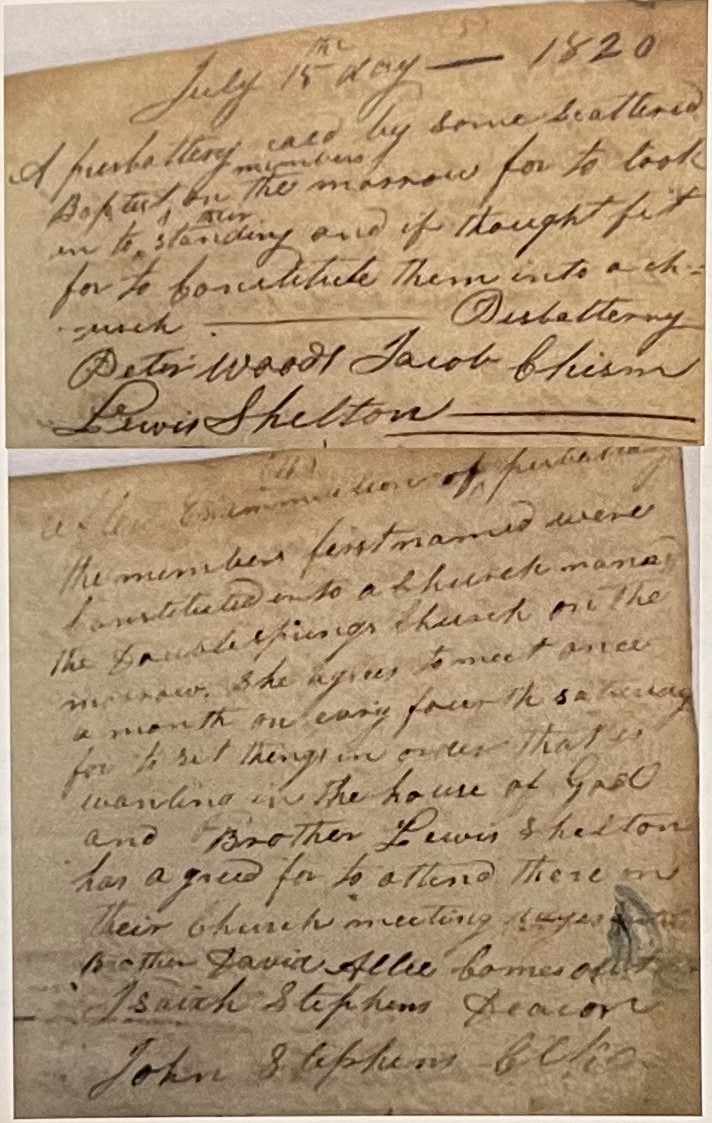 July 15th day — 1820
A presbattery caled by some scattered
members
Baptist on the morrow for to look
our
in to standing and if thought fit
for to Constitute them into a ch=
-urch ——— Presbatterry
Peter Woods Jacob Chism
Lewis Shelton ———
Examination of presbattry
the members first named were
Constituted into a Church named
the Double Springs Church on the
morrow. She agrees to meet once
a month on evry fourth saturday
for to set things in order that is
wanting in the house of God
and Brother Lewis Shelton
has agreed for to attend there on
their Church meeting dayes
Brother David Allee Comes
Isaiah Stephens Deacon
John Stephens Clk